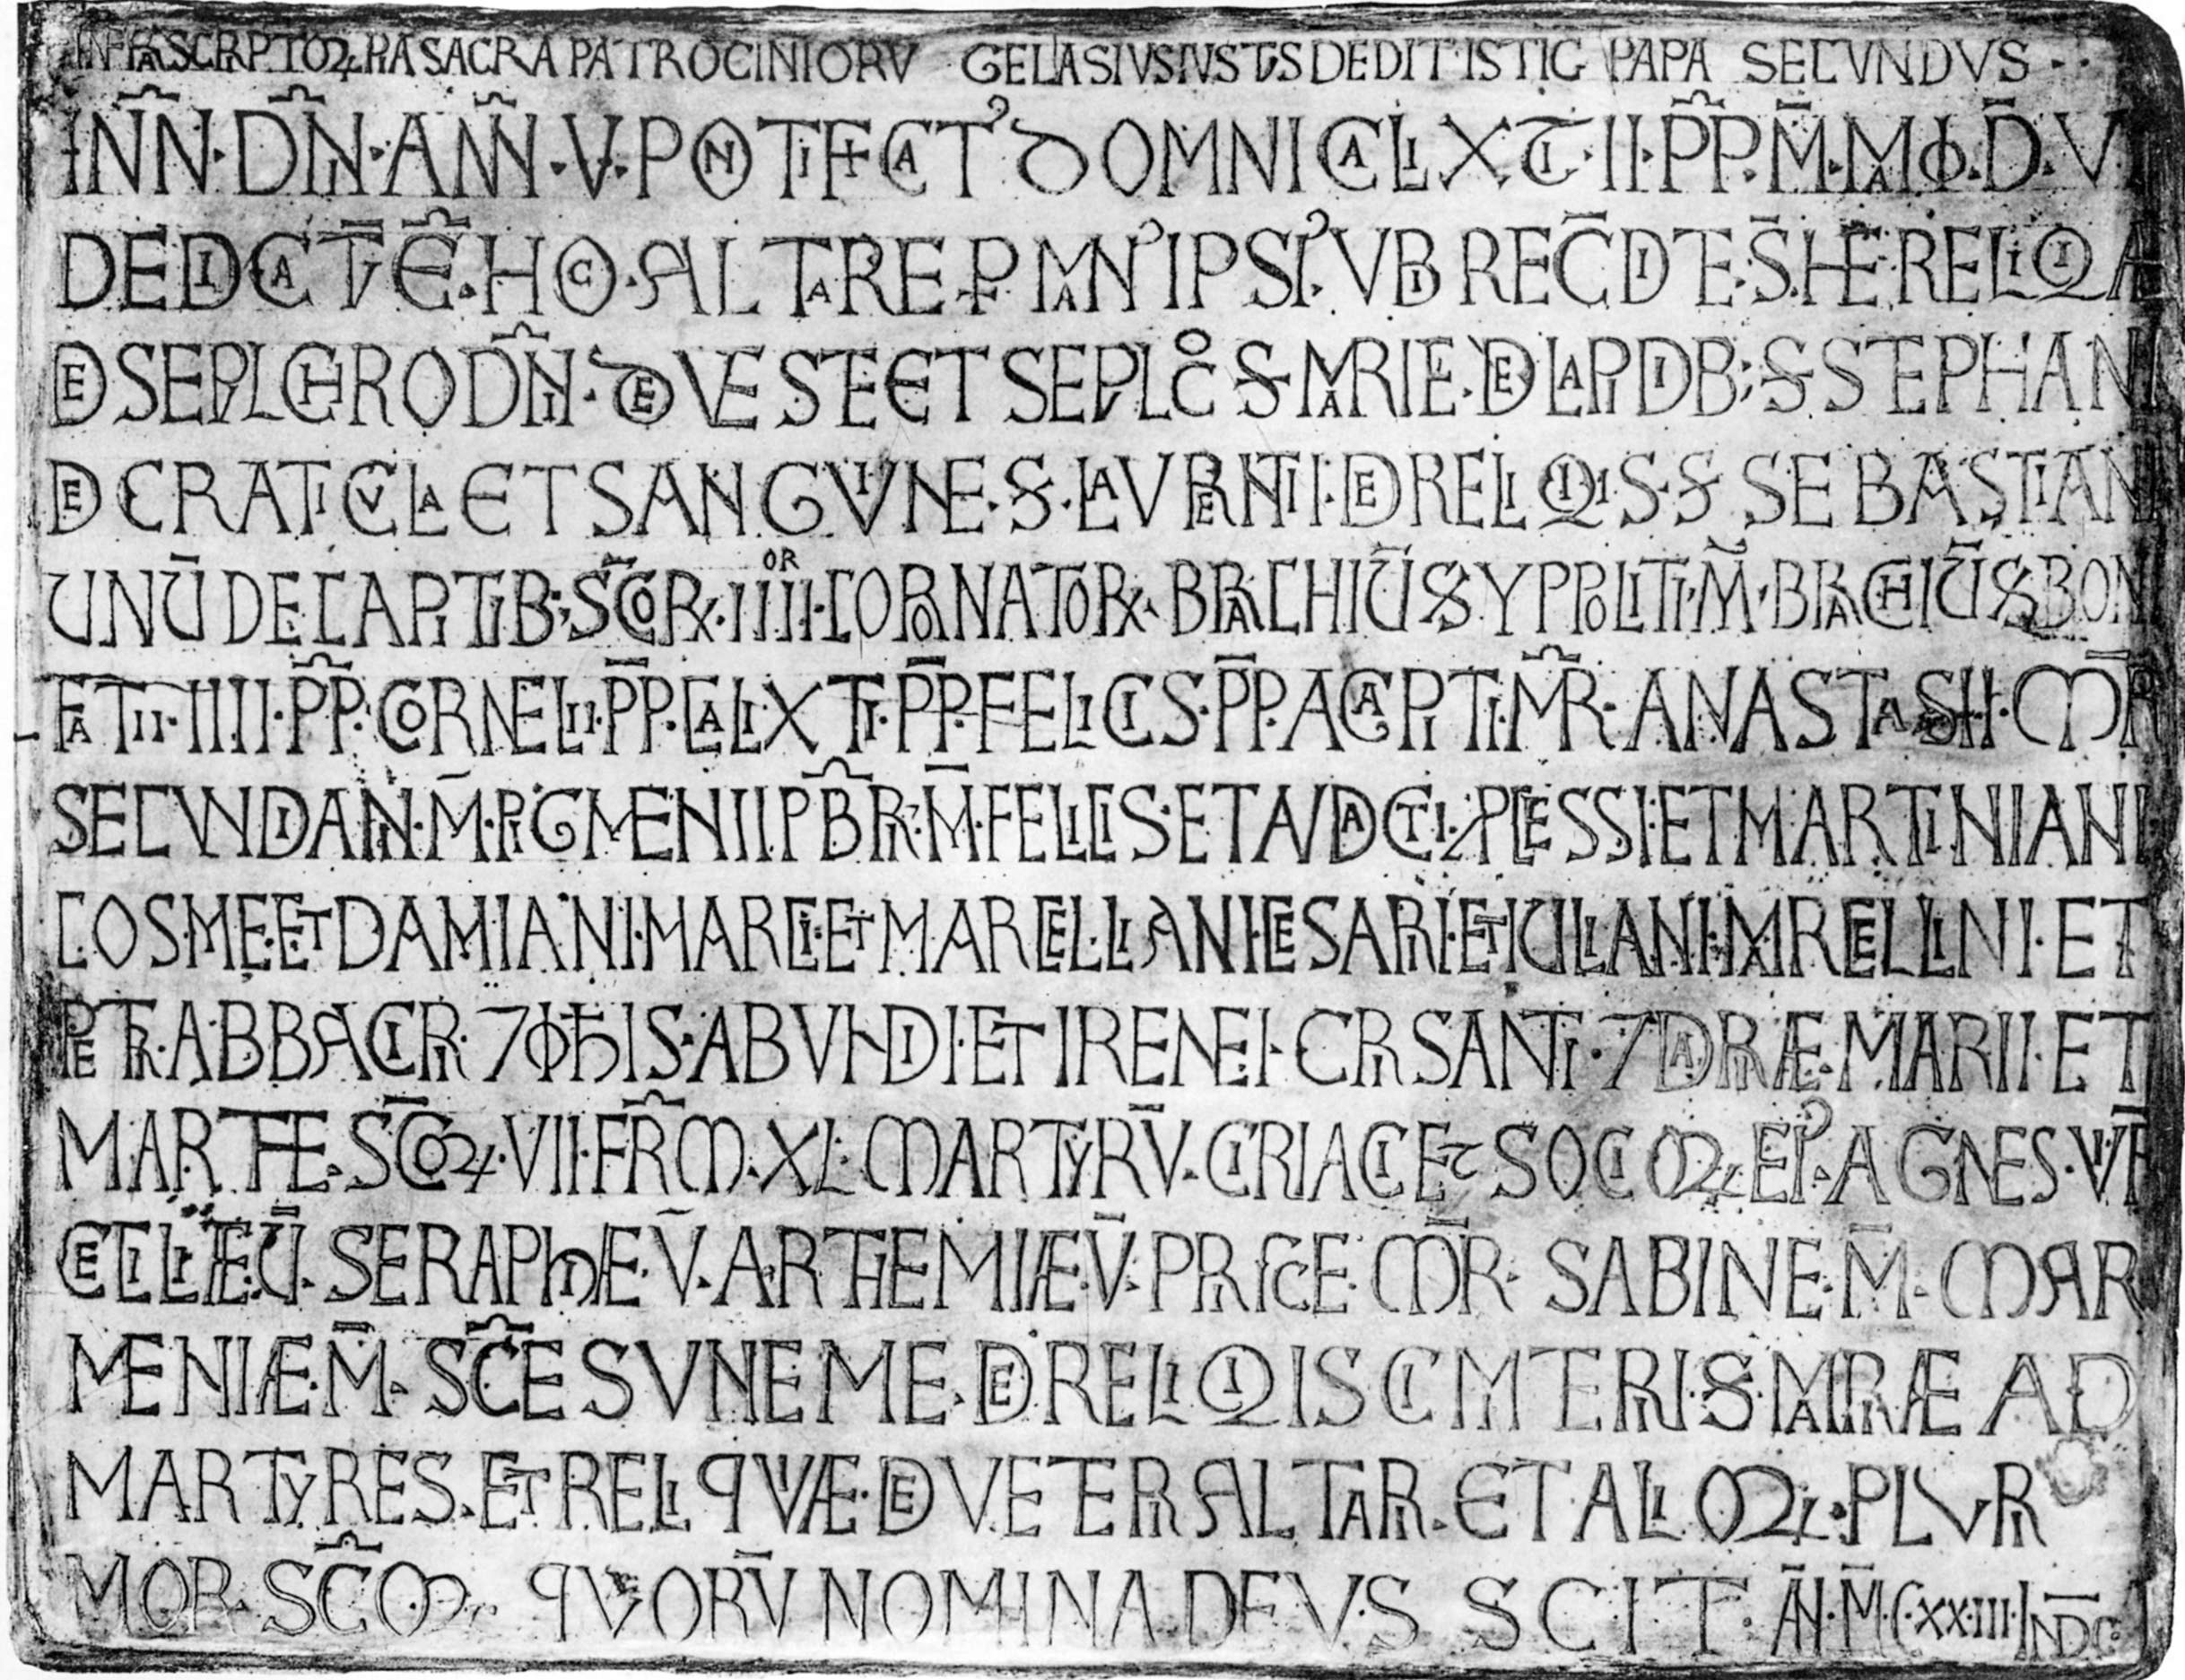 INFRASCRIPTOꝜ HA SACRA PATROCINIORV GELASIVS IVSTVS DEDIT ISTIC PAPA SECVNDVS
IN N̄ · DN̄I · ANN̄ · V · PONTIFICAT' DOMNI CALIXTI · II · P̄P · M̄ · MAI Φ · D̄ · VI
DEDICATV̄ Ē · HOC · ALTARE P MAN' IPSI' VBI REC̄DITE · S̄ · HE · RELIQIAE
DE SEPVLCHRO DN̄I · DE VESTE ET SEPVLC° S MARIE · DE LAPIDIB; S STEPHANI
DE CRATICVLA ET SANGVINE · S · LAVRENTII · DE RELIQIIS · S SEBASTIANI
UNŪ DE CAPITIB; SC̄OR · IIIIOR · CORONATOR · BRACHIŪ S YPPOLITI · M̄ · BRACHIŪ S BONI
FATII · IIII · P̄P · CORNELII · P̄P · CALIXTI · P̄P · FELICIS · P̄P · ACAPITI · M̄R · ANASTASII · M̄R
SECVNDIANI · M̄ · PIGMENII PB̄R · M̄ · FELICIS · ET AVDACTI · PLESSI · ET MARTINIANI
COSME · ET DAMIANI · MARCI · ET MARCELLIANI CESARII · ET IULIANI · MARCELLINI · ET
PETRI · ABBACIRI · ⁊ IOHIS · ABVNDI · ET IRENEI · CRISANTI · ⁊ DARIÆ · MARII · ET
MARTHE · SC̄OꝜ · VII · FR̄M · XL · MARTYRV̄ · CIRIACI ET SOCIOꝜ EI' · AGNES · VIR̄
CECILIÆ · Ū · SERAPHIÆ · V̄ · ARTHEMIÆ · V̄ · PRISCE · M̄R · SABINE · M̄ · MAR
MENIÆ · M̄ · SC̄E SVNEME · DE RELIQIIS CIMITERII · S · MARIÆ AD
MARTYRES · ET RELIQVIÆ · DE VETERI ALTARI · ET ALIOꝜ · PLVRI
MOR · SC̄OꝜ QVORV̄ NOMINA DEVS SCIT · AN̄ · M̄ · CXXIII · INDC̄ I